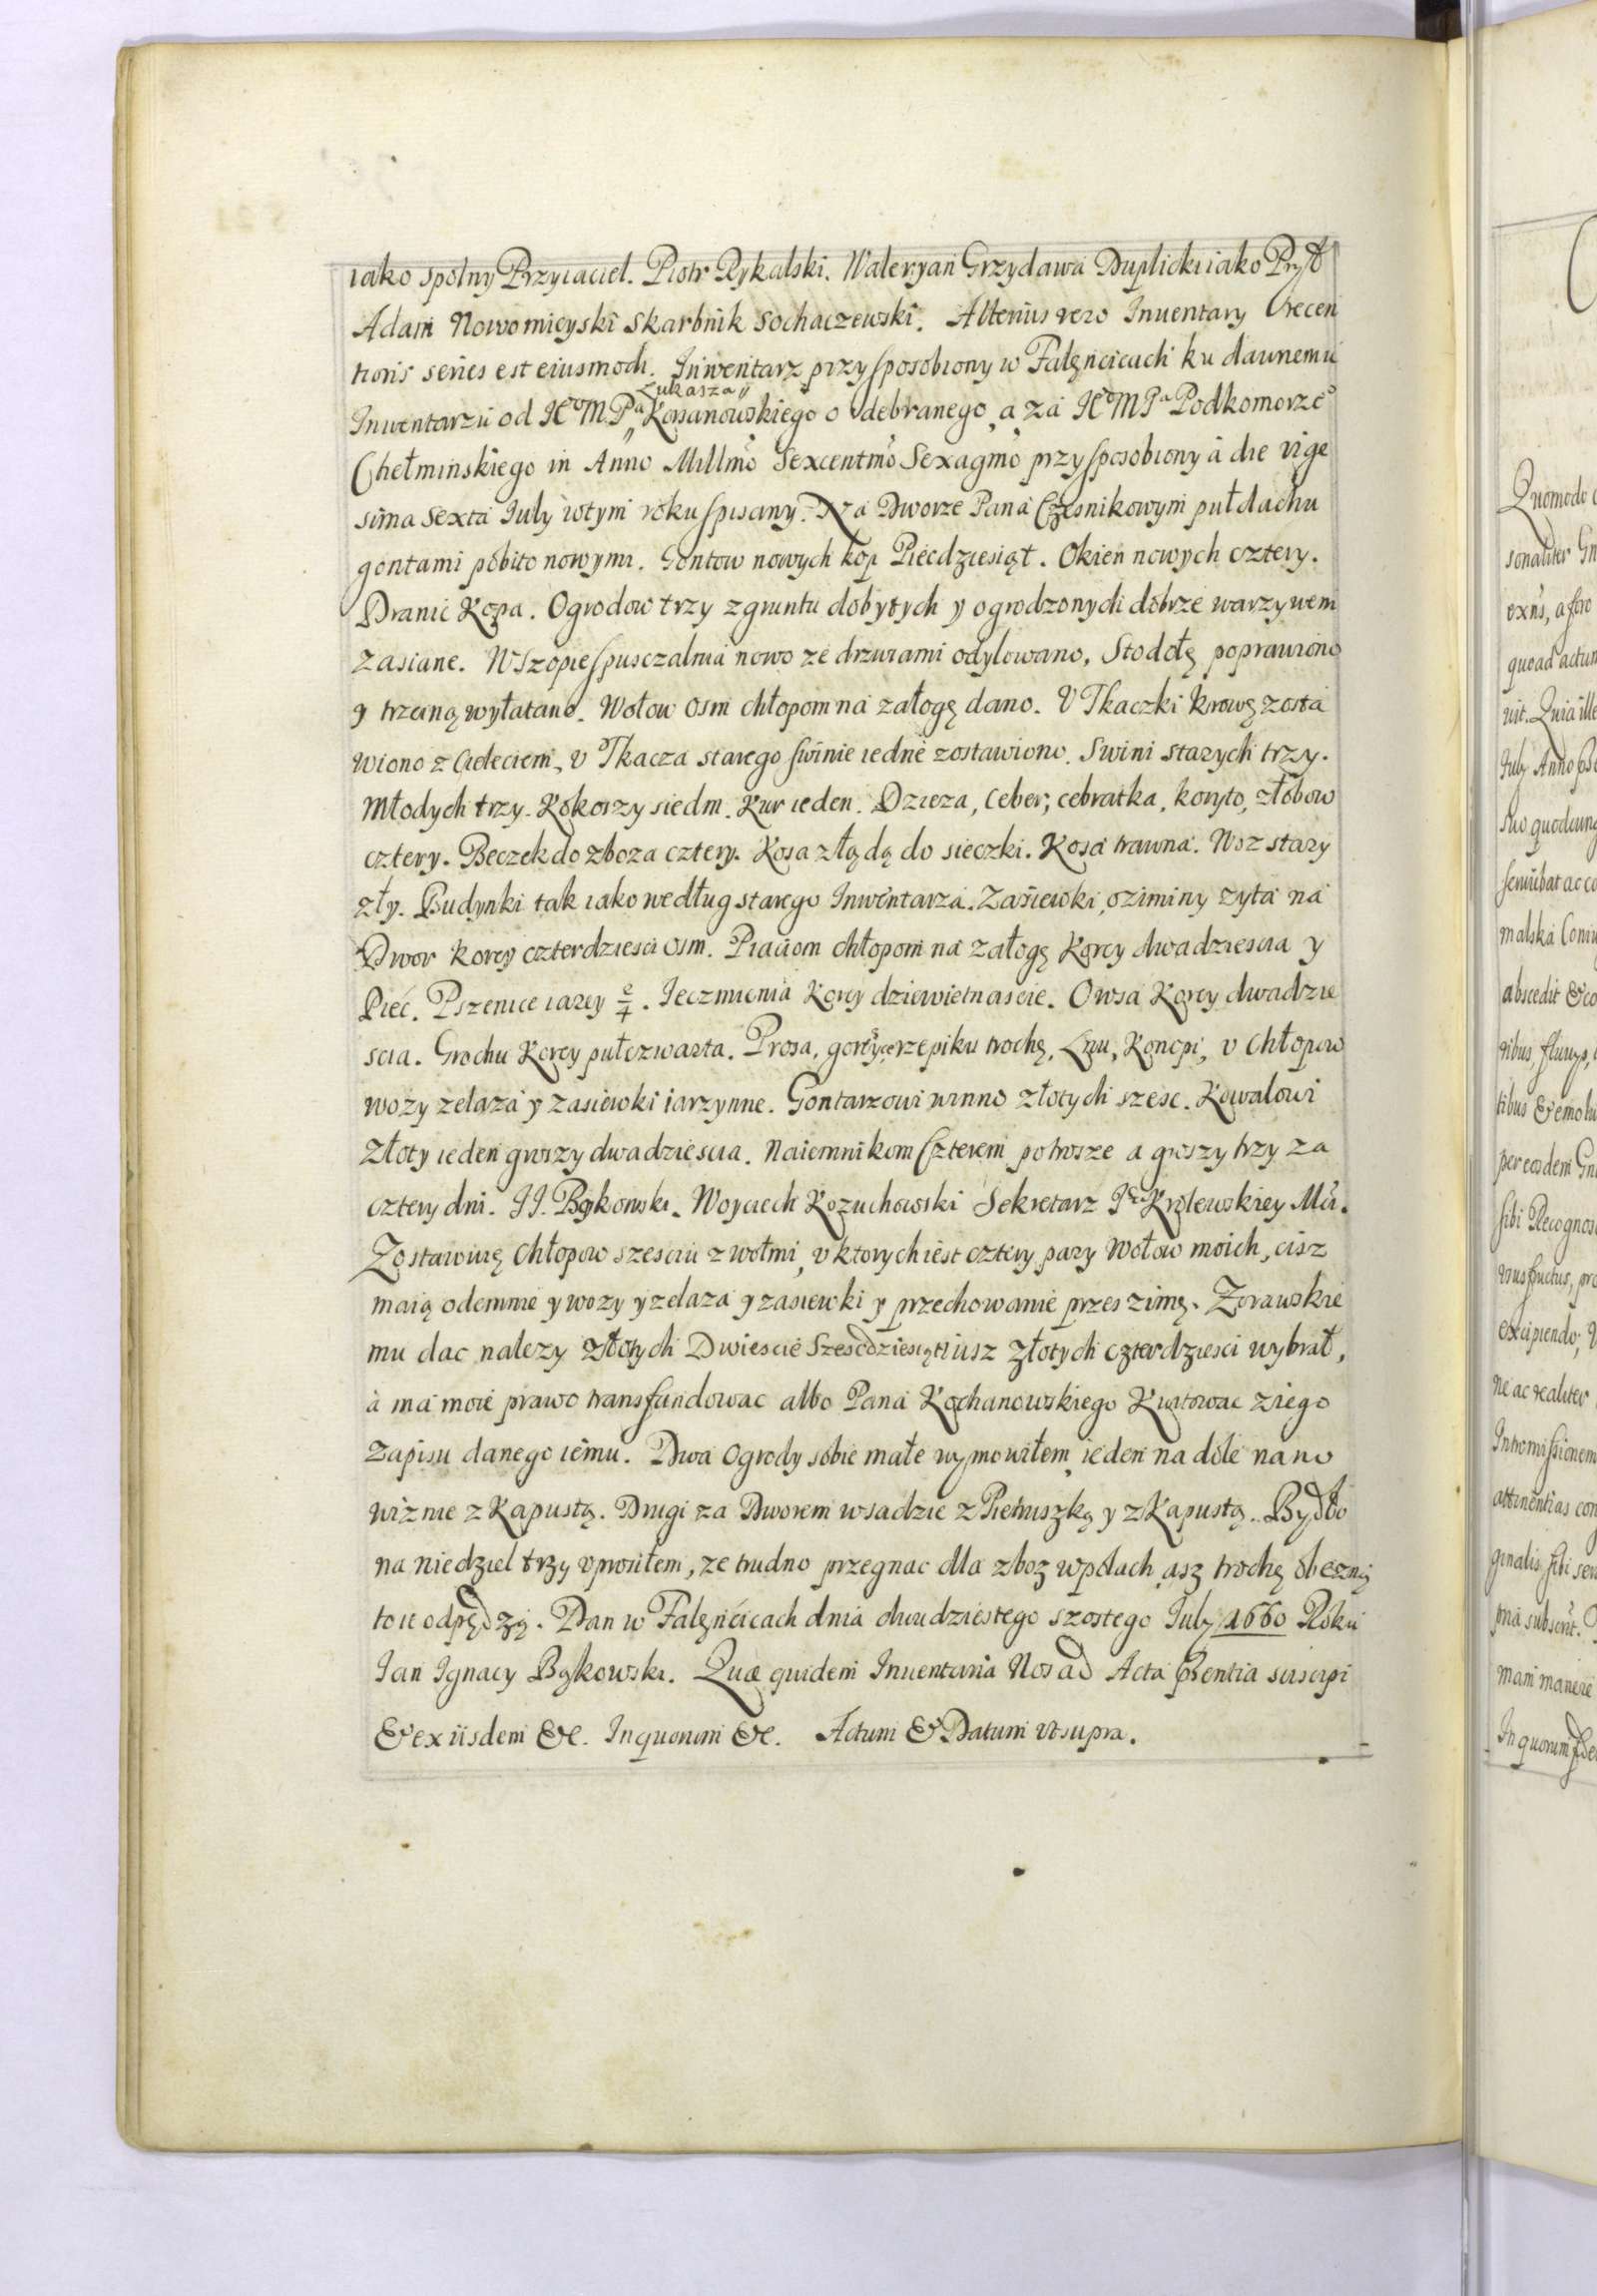 iako spolny Przyiaciel. Piotr Rykalski. Waleryan Grzydawa Duplicki iako
Adam Nowomieyski Skarbnik Sochaczewski. Alterius vero Inuentary
tioris series est eiusmodi. Inwentarz przysposobiony w Falęncicach ku dawnemu
Łukasza
Inwentarzu od Kossanowskiego odebranego, a za Podkomorze
Chełminskiego in Anno Millmo Sexcentmo Sexagmo przysposobiony a die vige
sima Sexta July w tym roku spisany. Na Dworze Pana Czesnikowym puł dachu
gontami pobito nowymi. Gontow nowych kop Piecdziesiąt. Okien nowych cztery.
Dranic Kopa. Ogrodow trzy z gruntu dobytych y ogrodzonych dobrze warzywem
zasiane. W Szopie spusczalnia nowo ze drzwiami odylowano, Stodołę poprawiono
y trzciną wyłatano. Wołow osm chłopom na załogę dano. V Tkaczki krowę zosta
wiono z Cieleciem, v Tkacza starego swinie iedne zostawiono. Swini starych trzy.
Młodych trzy. Kokoszy siedm. Kur ieden. Dzieza, Ceber, cebratka, koryto, złobow
cztery. Beczek do zboza cztery. Kosa z łądą do sieczki. Kosa trawna. Woz stary
zły. Budynki tak iako według starego Inwentarza. Zasiewki, oziminy zyta na
Dwor korcy czterdziesci osm. Piaciom chłopom na załogę Korcy dwadziescia y
Pieć. Pszenice iarey 2/4. Ieczmienia Korcy dziewietnascie. Owsa Korcy dwadzie
scia. Grochu Korcy pułczwarta. Prosa, gorczyce rzepiku trochę, Lnu, Konopi, v Chłopow
wozy zelaza y zasiewki iarzynne. Gontarzowi winno złotych szesc. Kowalowi
złoty ieden groszy dwadziescia. Naiemnikom Czterem po trosze a groszy trzy za
cztery dni. II. Bykowski. Woyciech Kozuchowski Sekretarz Krolewskiey
Zostawuię Chłopow szesciu z wołmi, v ktorych iest cztery pary Wołow moich, cisz
maią odemnie y wozy y zelaza y zasiewki y przechowanie przes zimę. Zorawskie
mu dac nalezy złotych Dwiescie Szescdziesiąt iusz złotych czterdziesci wybrał,
a ma moie prawo transfundowac albo Pana Kochanowskiego Kwitowac z iego
zapisu danego iemu. Dwa Ogrody sobie małe wymowiłem, ieden na dole na no
wiznie z Kapustą. Drugi za Dworem w sadzie z Pietruszką y z Kapustą. Bydło
na niedziel trzy vprosiłem, ze trudno przegnac dla zboz w polach, asz trochę
to ie odpędzą. Dan w Falęncicach dnia dwudziestego szostego July 1660 Roku
Ian Ignacy Bykowski. Quæ quidem Inuentaria Nos ad Acta pñentia suscepi
& ex iisdem &c. In quorum &c. Actum & Datum vt supra.